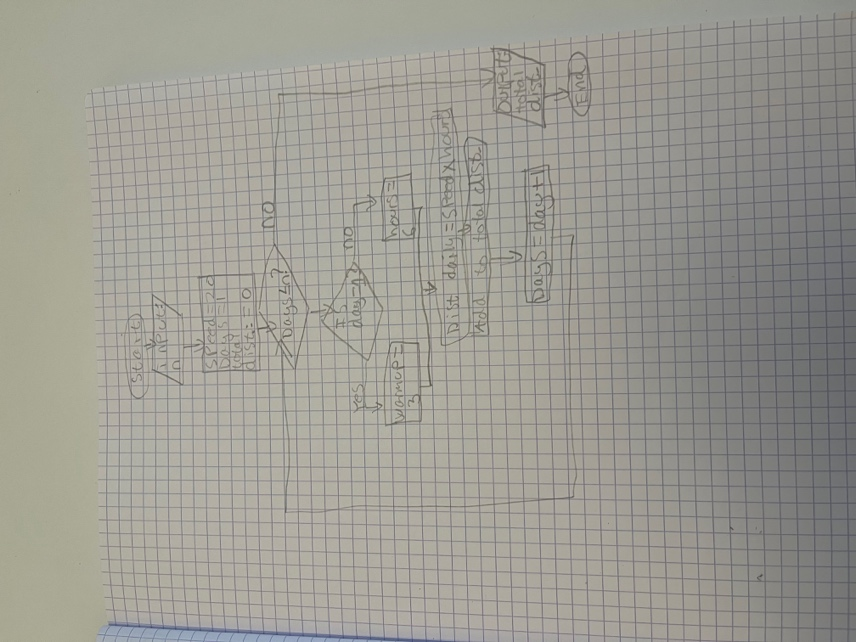 Start
input
n
Speed=20
Days=1
total
dist.=0
no
Is
no
yes
hours=
6
warmup=
3
Dist daily=Speed×hours
Add to total dist.
Days=day+1
Output
total
dist.
End